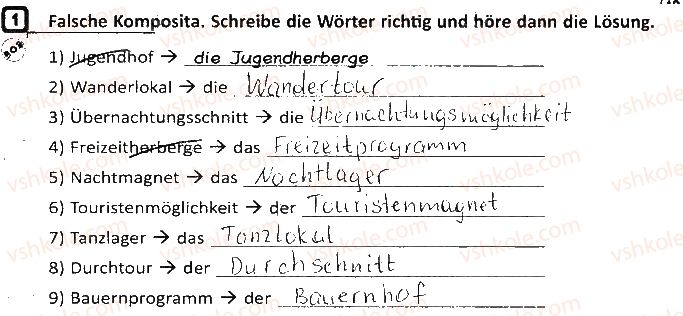 1 Falsche Komposita. Schreibe die Wörter richtig und höre dann die Lösung.
1) Jugendhof → die Jugendherberge
2) Wanderlokal → die Wandertour
3) Übernachtungsschnitt → die Übernachtungsmöglichkeit
4) Freizeitherberge → das Freizeitprogramm
5) Nachtmagnet → das Nachtlager
6) Touristenmöglichkeit → der Touristenmagnet
7) Tanzlager → das Tanzlokal
8) Durchtour → der Durchschnitt
9) Bauernprogramm → der Bauernhof